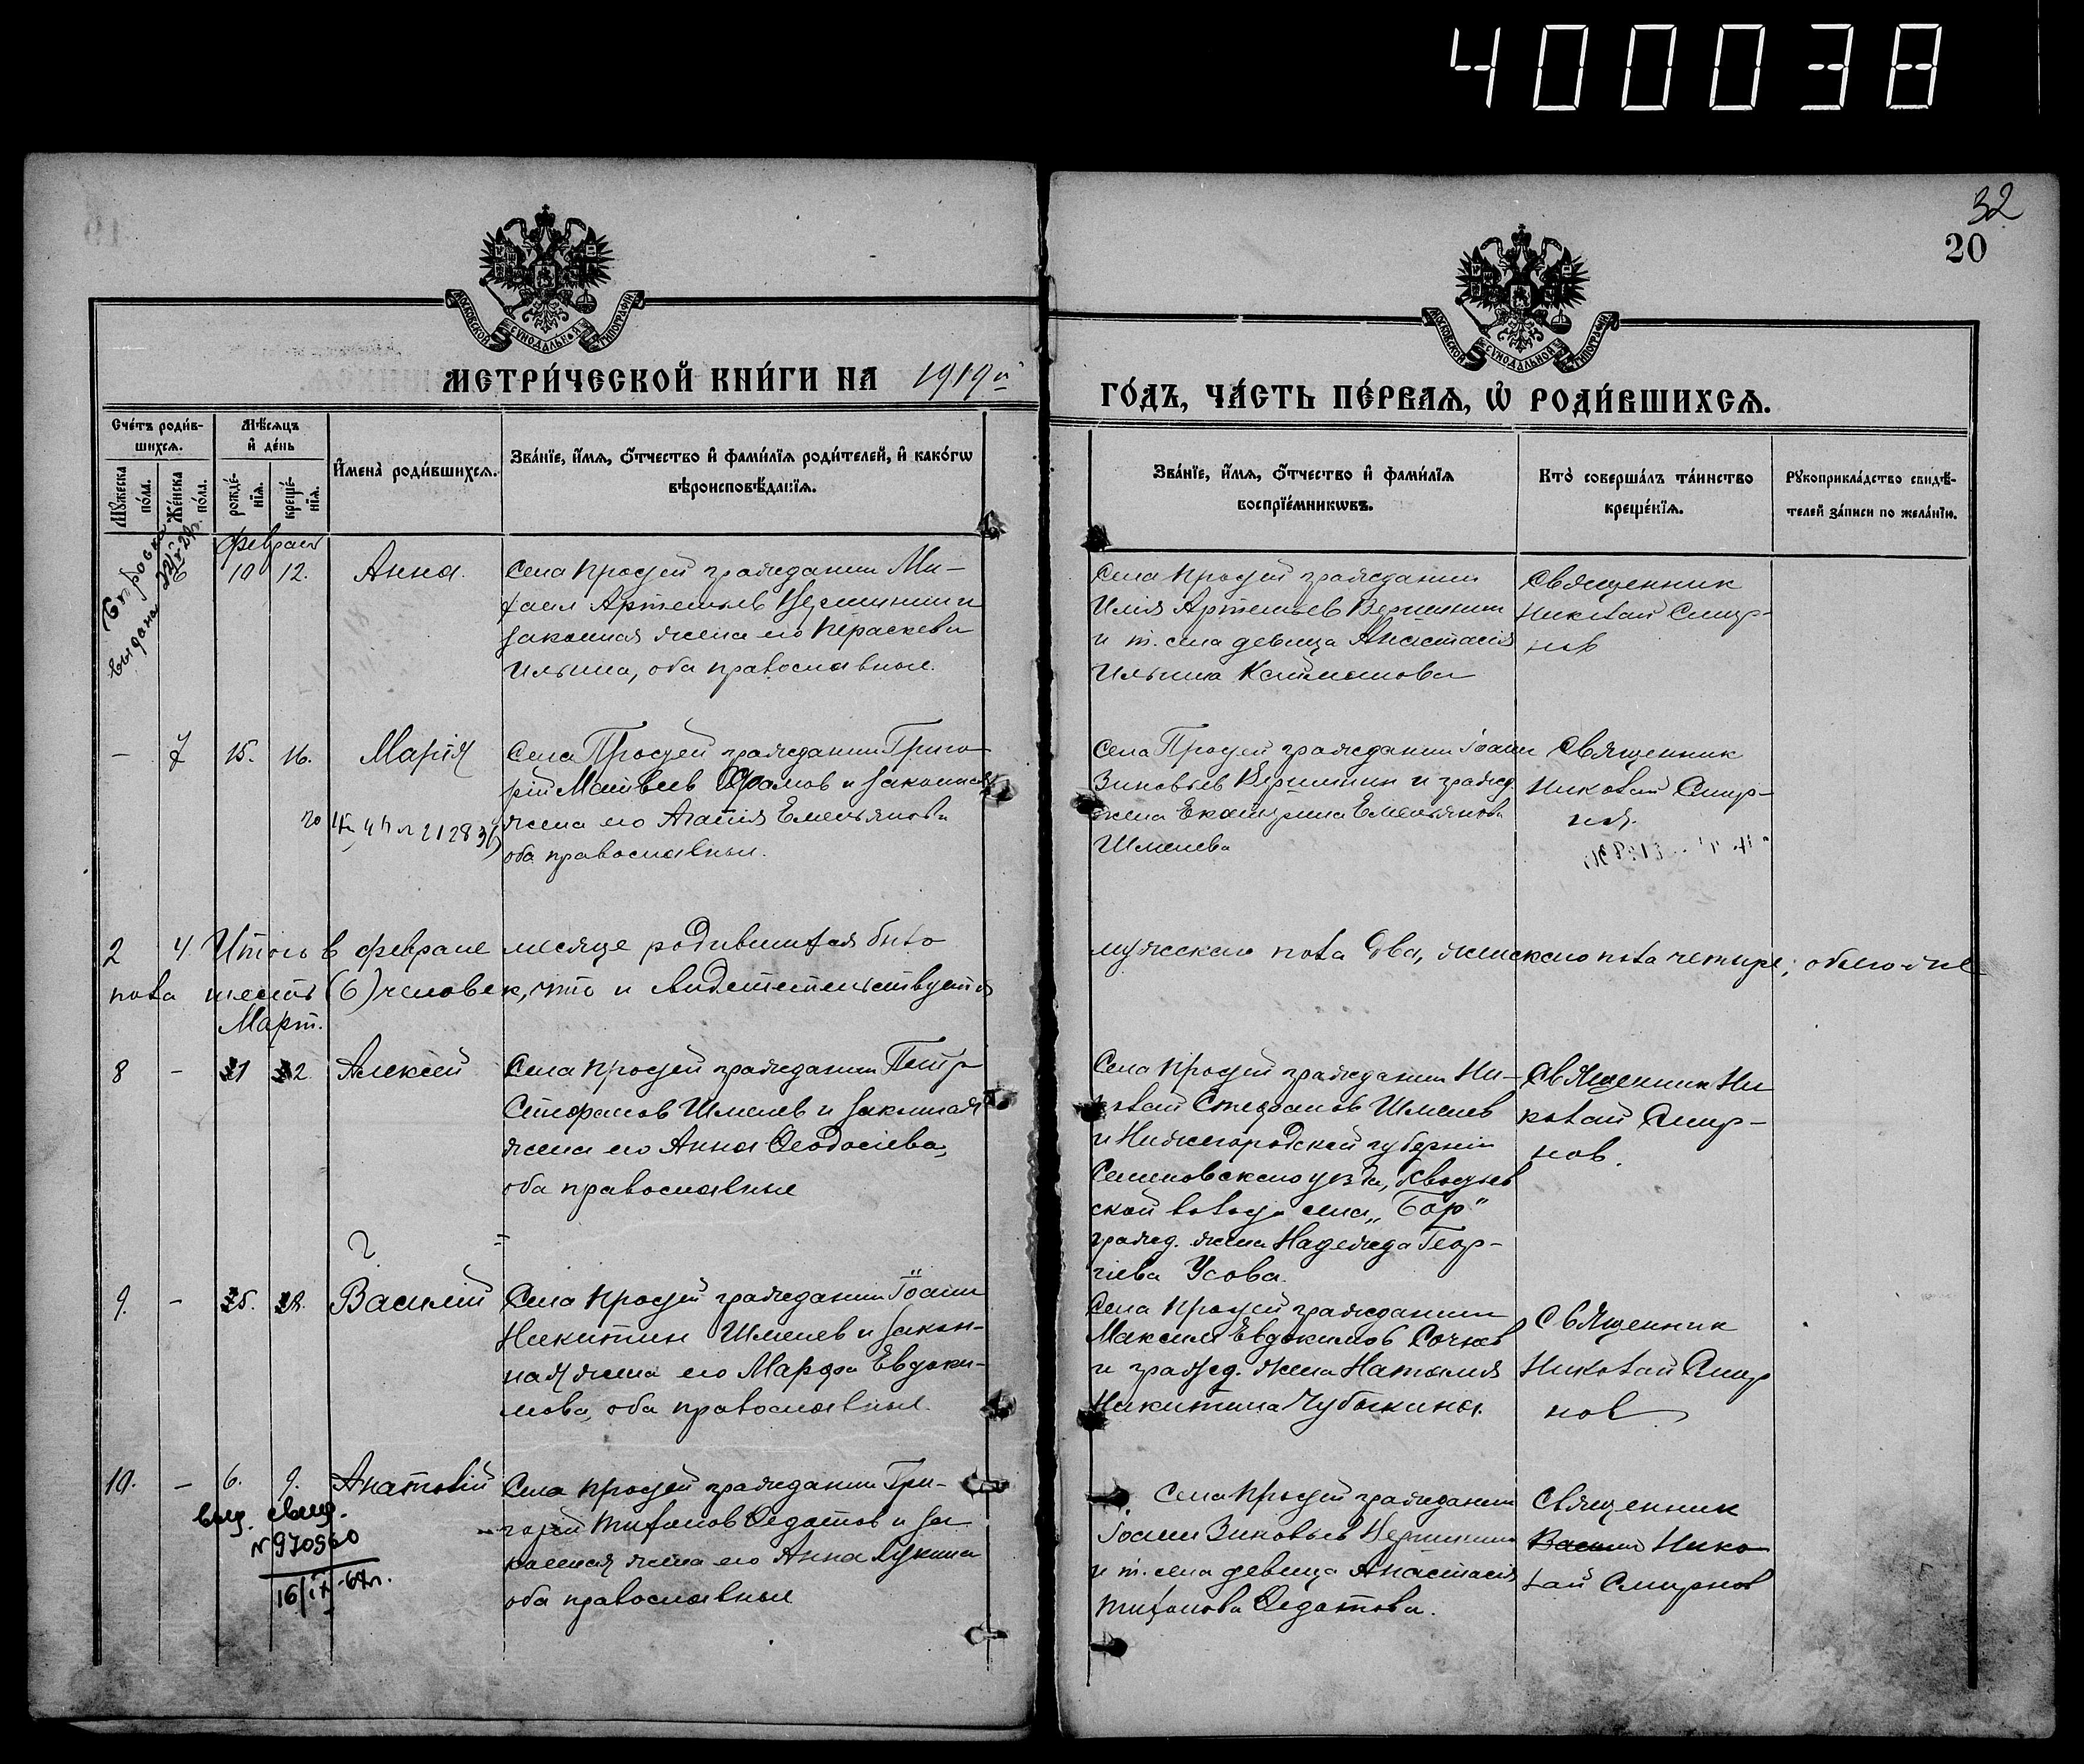 400038
32
20
МОСКОВСКОЙ СѴНОДАЛЬНОЙ ТИПОГРАФІИ
МОСКОВСКОЙ СѴНОДАЛЬНОЙ ТИПОГРАФІИ
МЕТРИ́ЧЕСКОЙ КНИ́ГИ НА 1919й
ГО́ДЪ, ЧА́СТЬ ПЕ́РВАЯ, Ѡ РОДИ́ВШИХСЯ.
Сче́тъ роди́в-
шихся.
Мѣ́сяцъ
и҆ де́нь
Мꙋ́жеска по́ла.
Же́нска по́ла.
рожде́-нїя.
креще́-нїя.
И҆мена̀ роди́вшихся.
Зва́нїе, и҆́мя, ѻ҆́тчество и҆ фами́лїя роди́телей, и҆ како́гѡ
вѣроисповѣ́данїя.
Зва́нїе, и҆́мя, ѻ҆́тчество и҆ фами́лїя
воспрїе́мникѡвъ.
Кто̀ соверша́лъ та́инство
креще́нїя.
Рꙋкоприкла́дство свидѣ́-
телей за́писи по жела́нїю.
выдана
Февраля
6 10 12. Анна.
Села Просуи гражданин Ми-
хаил Артемьев Вершинин и
законная жена его Параскева
Ильина, оба православные.
Села Просуи гражданин
Илия Артемьев Вершинин
и т. села девица Анастасия
Ильина
Священник
Николай Смир-
нов
– 7 15. 16. Мария
Села Просуи гражданин Григо-
рий Матвеев и законная
жена его Агапия Емельянова
оба православные.
Села Просуи гражданин Иоанн
Зиновьев Вершинин и гражд.
жена Екатерина Емельянова
Шмелева
Священник
Николай Смир-
нов.
2 4 Итого в феврале месяце родившихся было
мужского пола два, женского пола четыре, обоего же
пола шесть (6) человек, что и свидетельствуется
Март.
8 – 1 2 Алексей
Села Просуи гражданин Петр
Стефанов Шмелев и законная
жена его Анна Феодосиева,
оба православные
Села Просуи гражданин Ни-
колай Стефанов Шмелев
и Нижегородской губернии
Семеновского уезда,
ской волос. села „Бор"
гражд. жена Надежда Геор-
гиева Усова.
Священник Ни
колай Смир-
нов.
?
9. – 5. 8. Василий
Села Просуи гражданин Иоанн
Никитин Шмелев и закон-
ная жена его Марфа Евдоки-
мова, оба православные.
Села Просуи гражданин
Максим Евдокимов Сочнев
и гражд. жена Наталия
Никитина Чубыкина.
Священник
Николай Смир
нов
10. – 6. 9. Анатолий
выд. свид.
№970560
16/IX-67г.
Села Просуи гражданин Гри-
горий Тихонов Федотов и за
конная жена его Анна Лукина
оба православные
Села Просуи гражданин
Иоанн Зиновьев Вершинин
и т. села девица Анастасия
Тихонова Федотова.
Священник
Василий Нико
лай Смирнов